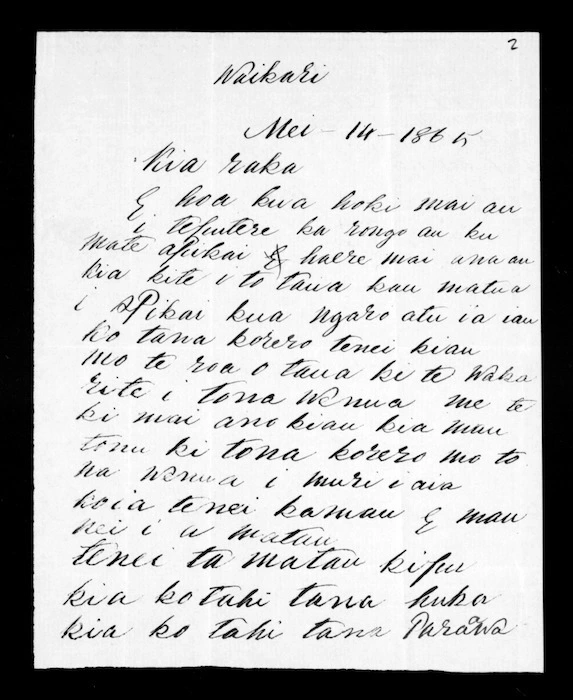 2
Waikari
Mei - 14 - 1865
Kia raka
E hoa kua hoki mai au
i teputere ka rongo au ku
mate apikai haere mai ana au
kia kite i to taua kau matua
i aPikai kua ngaro atu i a iau
ko tana korero tenei kiau
mo te roa o taua ki te waka
rite i tona wenua me te
ki mai ano kiau kia mau
tonu ki tona korero mo to
na wenua i muri i aia
koia tenei kamau E mau
nei i a matau
tenei ta matau kipu
kia ko tahi tana huka
kia ko tahi tana Parawa